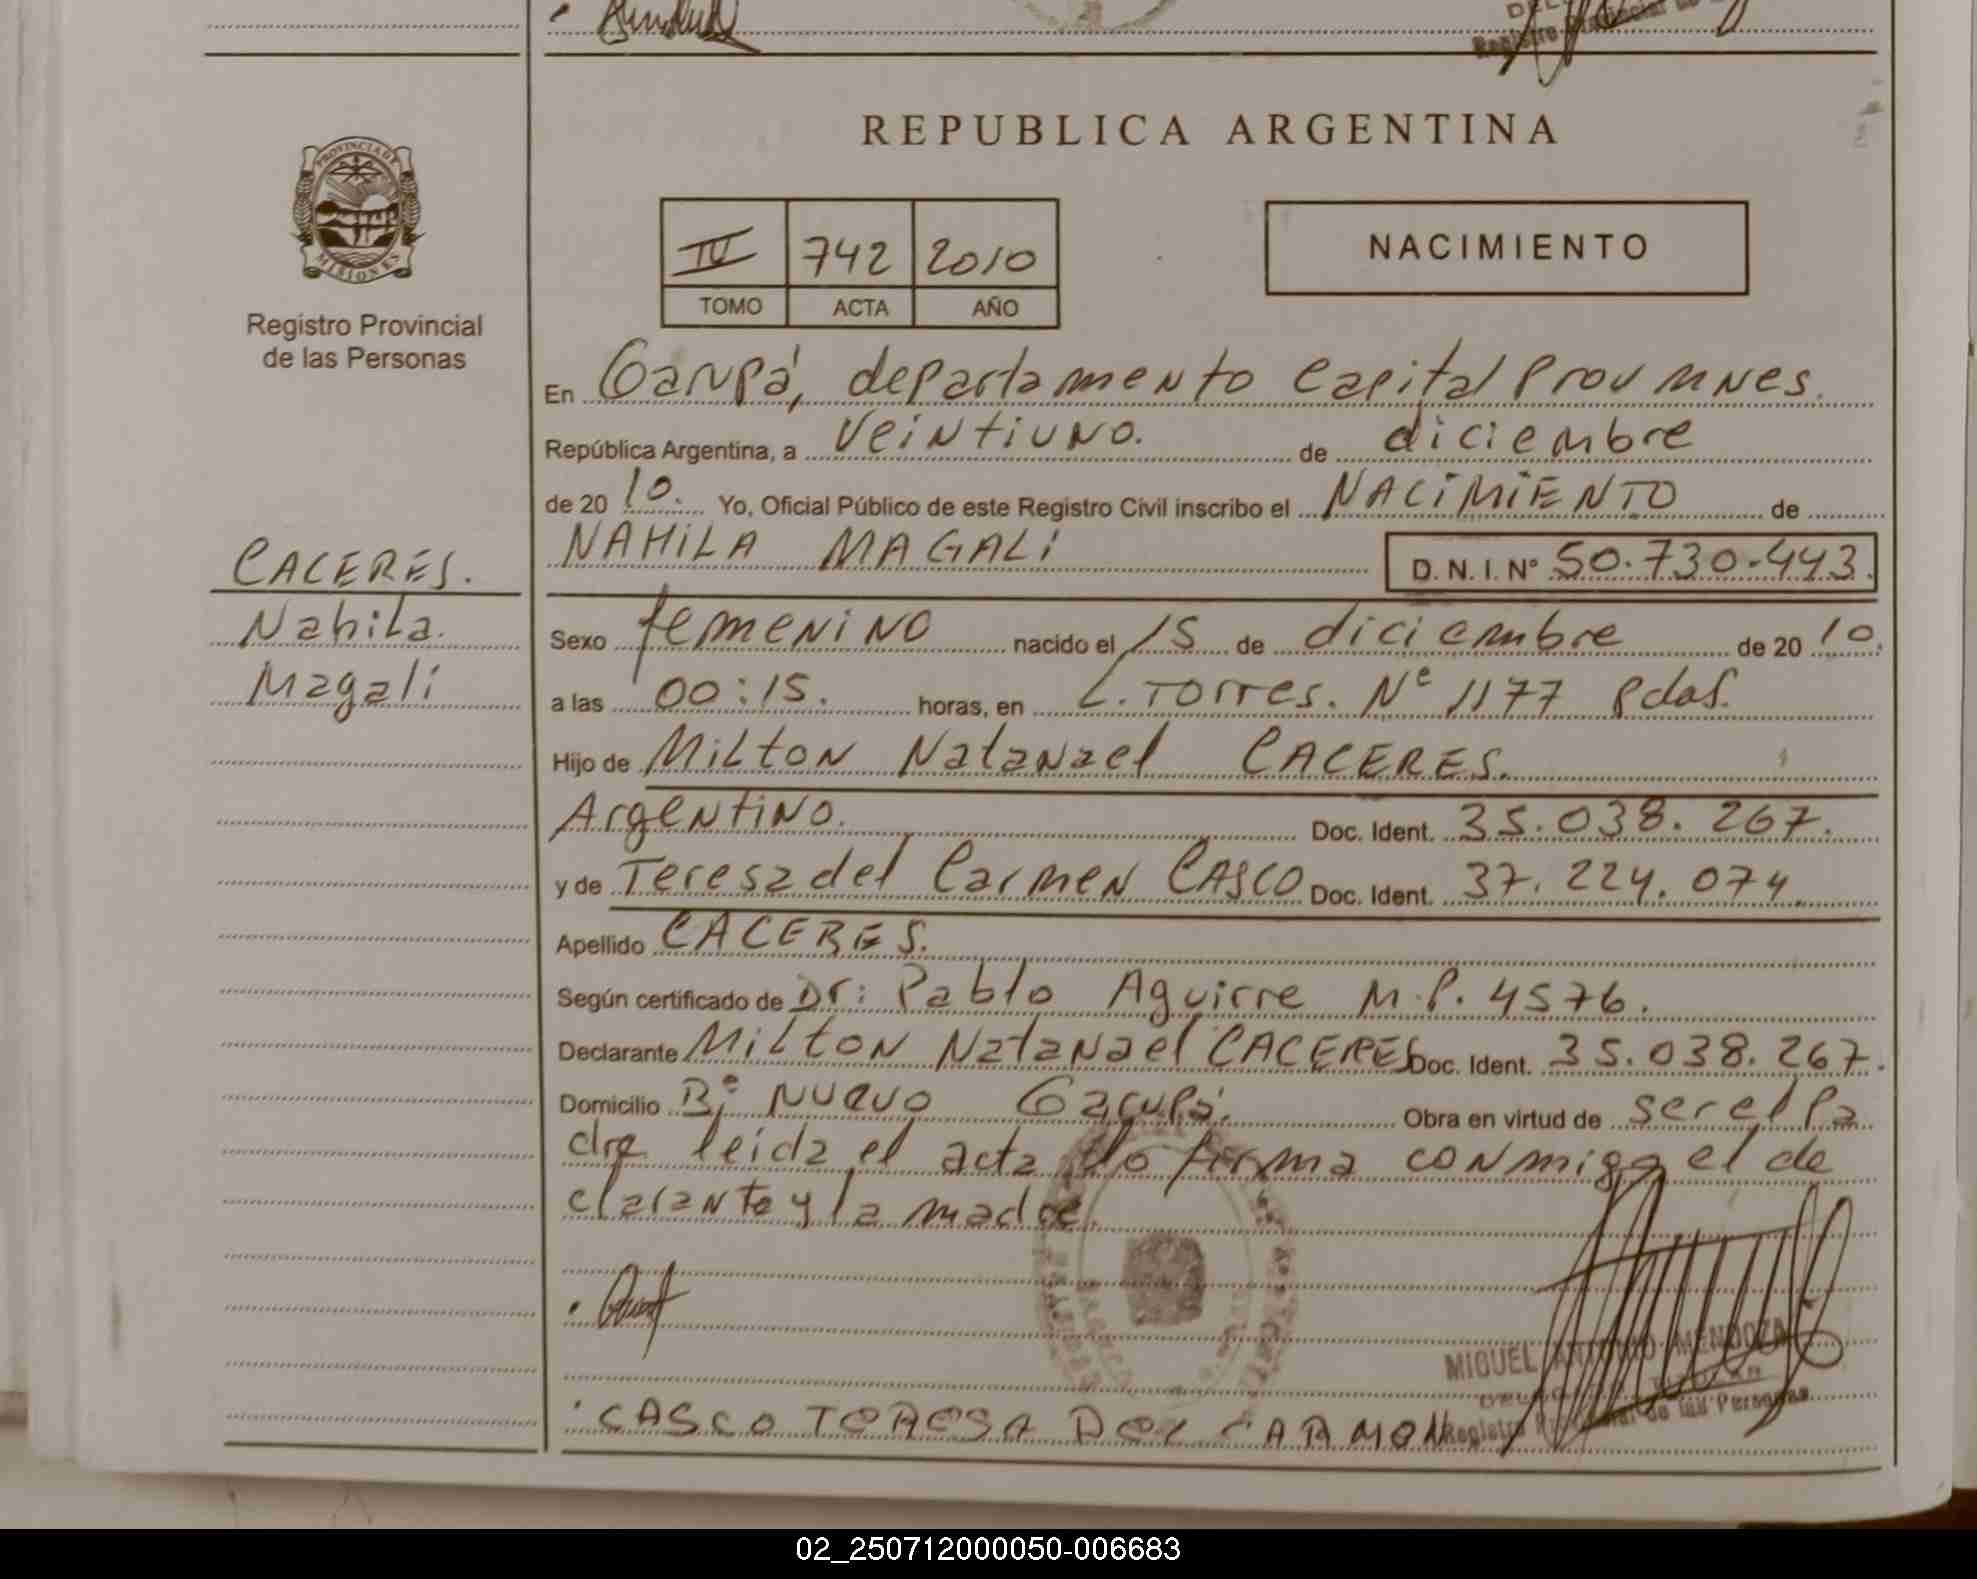 Registro Provincial de
REPUBLICA ARGENTINA
PROVINCIA DE
MISIONES
Registro Provincial
de las Personas
IV 742 2010
TOMO ACTA AÑO
NACIMIENTO
En Garupá, departamento Capital Prov Mnes.
República Argentina, a Veintiuno. de diciembre
de 2010. Yo, Oficial Público de este Registro Civil inscribo el NACIMIENTO de
NAHILA MAGALI D. N. I. N° 50.730.443.
CACERES.
Nahila.
Magali
Sexo femenino nacido el 15 de diciembre de 2010.
a las 00:15. horas, en L. Torres. N° 1177 Pdas.
Hijo de Milton Natanael CACERES.
Argentino. Doc. Ident. 35.038.267.
y de Teresa del Carmen CASCO Doc. Ident. 37.224.074.
Apellido CACERES.
Según certificado de Dr: Pablo Aguirre M.P. 4576.
Declarante Milton Natanael CACERES Doc. Ident. 35.038.267.
Domicilio B° Nuevo Garupá. Obra en virtud de ser el Pa
dre leida el acta lo firma conmigo el de
clarante y la madre.
MIGUEL ANTONIO MENDOZA
Registro Provincial de las Personas
CASCO TERESA DEL CARMEN
02_250712000050-006683